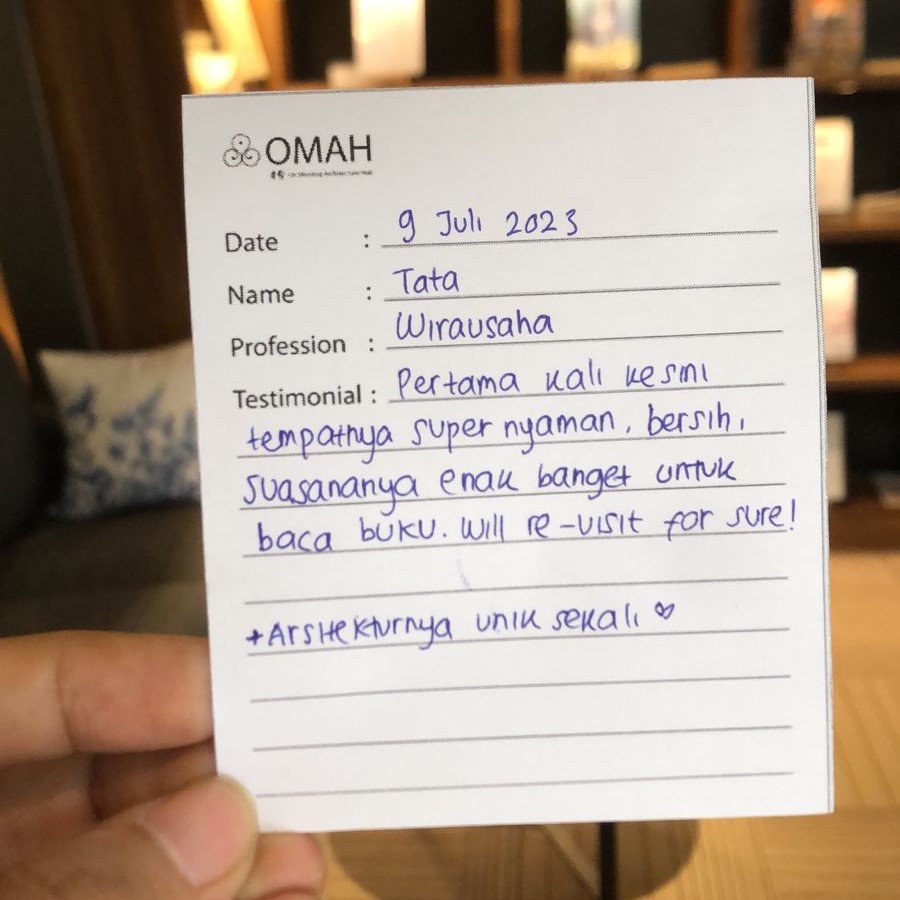 OMAH
Date : 9 Juli 2023
Name : Tata
Profession : Wirausaha
Testimonial : Pertama kali kesini
tempatnya super nyaman, bersih,
suasananya enak banget untuk
baca buku. Will re-visit for sure!
+Arsitekturnya unik sekali ♡